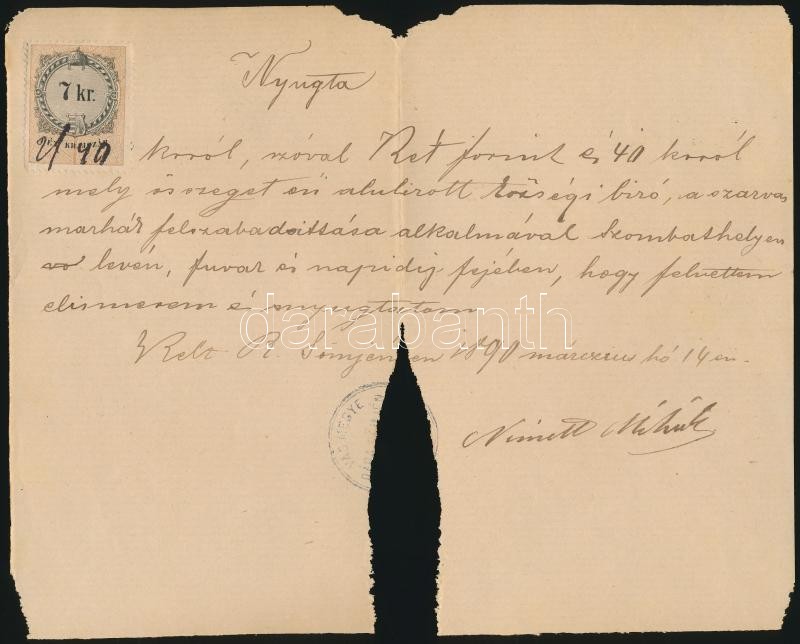 Nyugta
7 kr.
2f 40 kroról, szóval Két forint és 40 kroról
mely összeget én alulirott községi biró, a szarvas
marhák felszabadsittása alkalmával Szombathelyen
vo levén, fuvar és napidíj fejében, hogy felvettem
elismerem és nyugtatom
Kelt R. Sömjénben 1890 márczius hó 14 én.
VAS MEGYE
Németh Mihál
darabanth